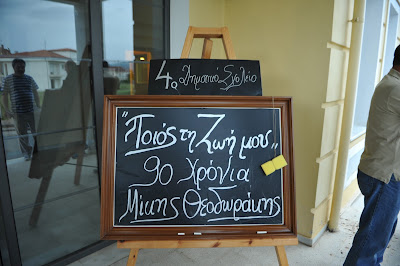 4ο Δημοτικό Σχολείο
"Ποιός τη Ζωή μου"
90 Χρόνια
Μίκης Θεοδωράκης